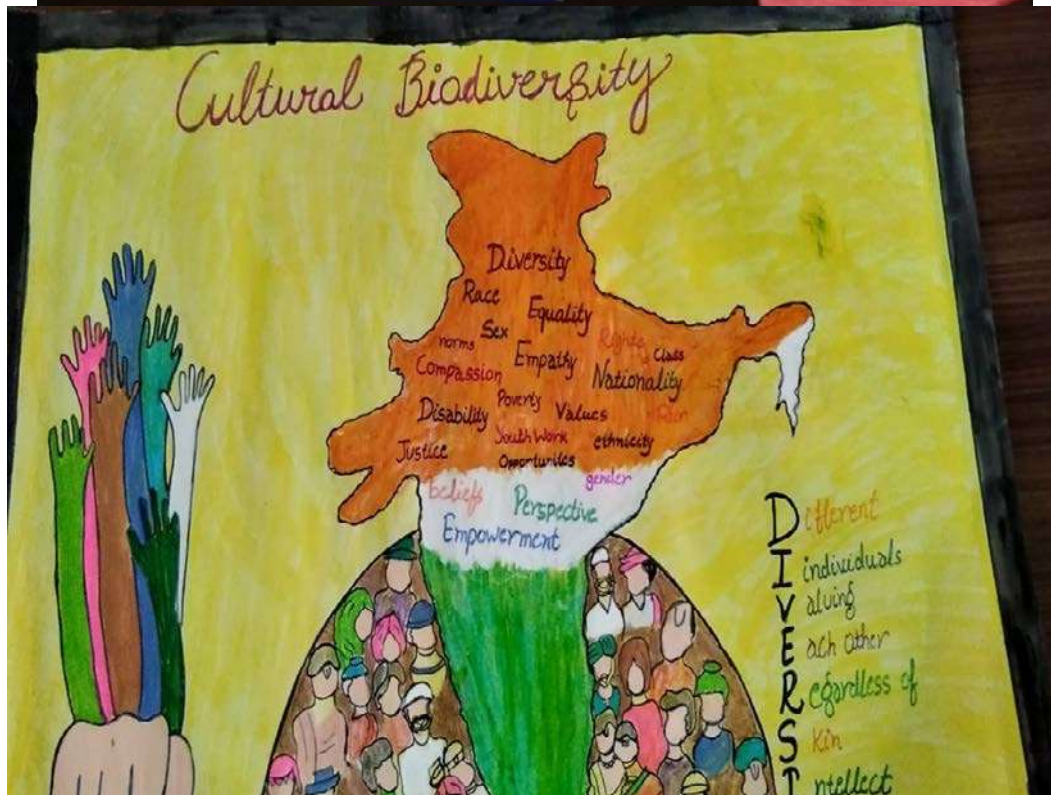 Cultural Biodiversity
Diversity
Race Equality
norms Sex Rights Class
Compassion Empathy Nationality
Disability Poverty Values
Justice Youth Work ethnicity
Opportunites gender
beliefs Perspective
Empowerment
Different
Individuals
Valuing
Each other
Regardless of
Skin
Intellect